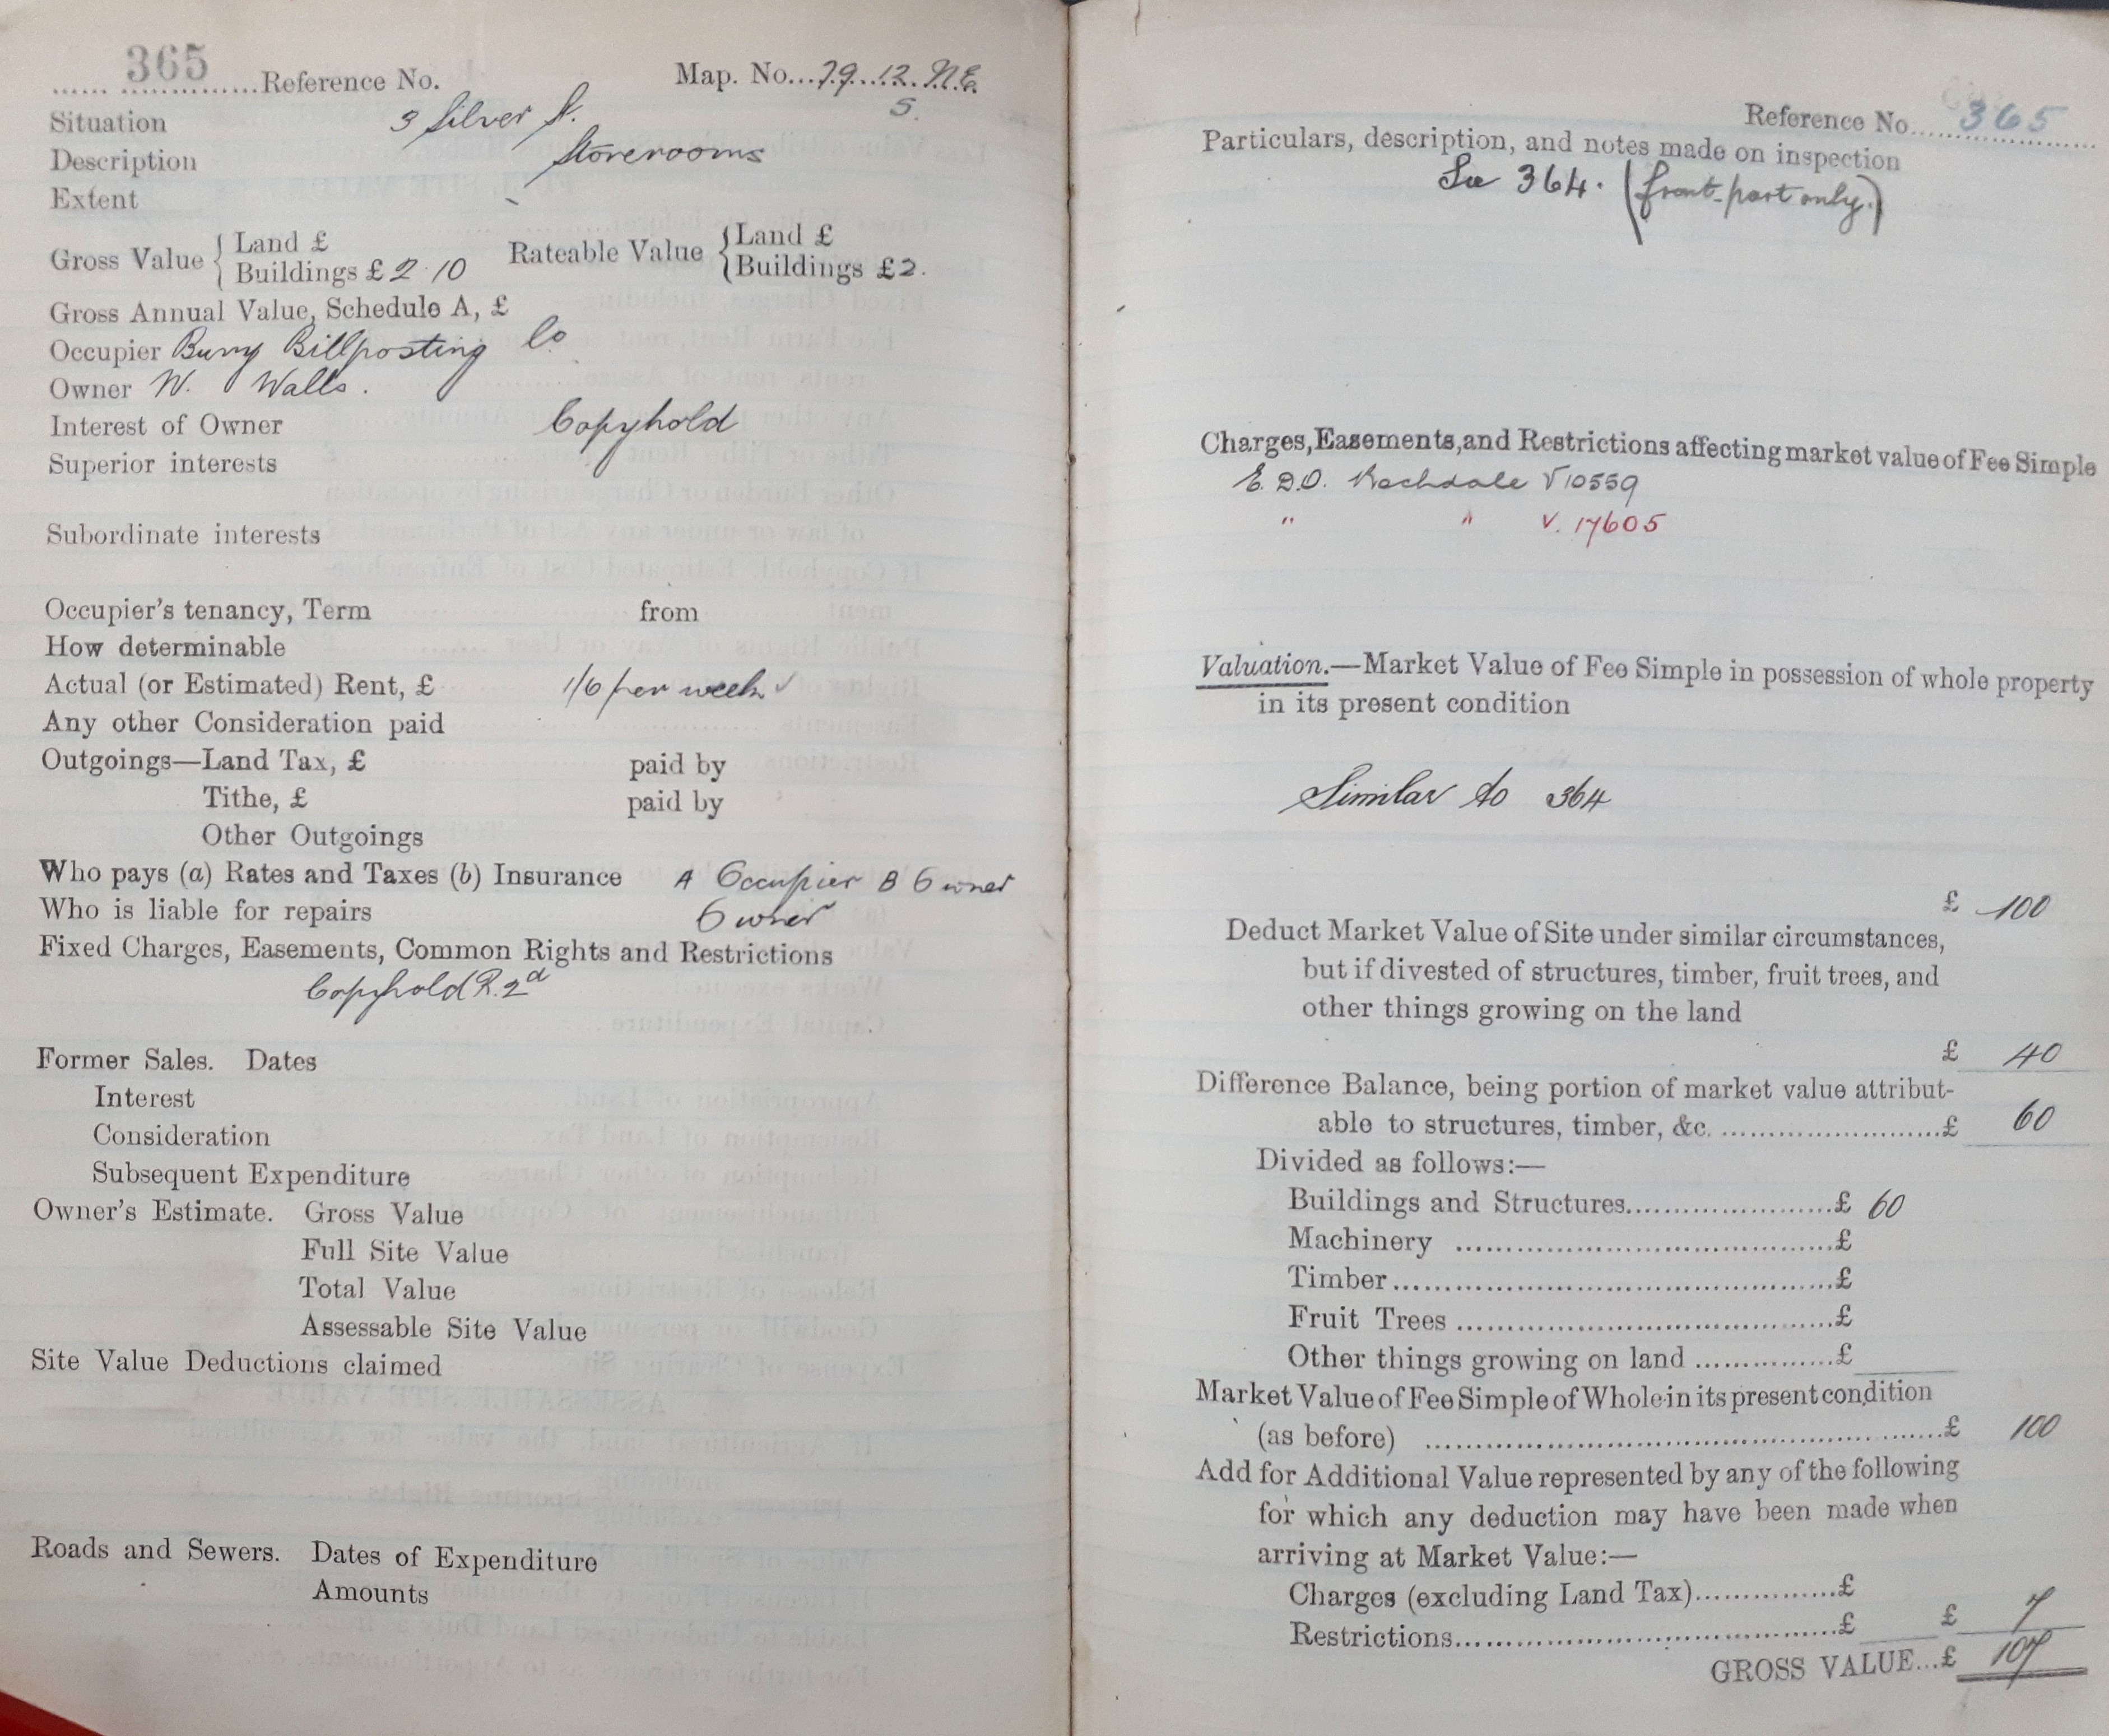 365
...... ..............Reference No.
Map. No...79...12. N.E.
S.
Situation 3 Silver St.
Description Storerooms
Extent
Gross Value { Land £
Buildings £ 2 10
Rateable Value { Land £
Buildings £2.
Gross Annual Value, Schedule A, £
Occupier Bury Billposting Co
Owner W. Walls.
Interest of Owner Copyhold
Superior interests
Subordinate interests
Occupier's tenancy, Term from
How determinable
Actual (or Estimated) Rent, £ 1/6 per week ✓
Any other Consideration paid
Outgoings—Land Tax, £ paid by
Tithe, £ paid by
Other Outgoings
Who pays (a) Rates and Taxes (b) Insurance A Occupier B Owner
Who is liable for repairs Owner
Fixed Charges, Easements, Common Rights and Restrictions
Copyhold R. 2d
Former Sales. Dates
Interest
Consideration
Subsequent Expenditure
Owner's Estimate. Gross Value
Full Site Value
Total Value
Assessable Site Value
Site Value Deductions claimed
Roads and Sewers. Dates of Expenditure
Amounts
Reference No. 365
Particulars, description, and notes made on inspection
See 364. (front part only.)
Charges, Easements, and Restrictions affecting market value of Fee Simple
E.D.O. Rochdale V 10559
" " V. 17605
Valuation.—Market Value of Fee Simple in possession of whole property
in its present condition
Similar to 364
£ 100
Deduct Market Value of Site under similar circumstances,
but if divested of structures, timber, fruit trees, and
other things growing on the land
£ 40
Difference Balance, being portion of market value attribut-
able to structures, timber, &c. ..........................£ 60
Divided as follows:—
Buildings and Structures.......................£ 60
Machinery ..........................................£
Timber.................................................£
Fruit Trees ..........................................£
Other things growing on land ................£
Market Value of Fee Simple of Whole in its present condition
(as before) ..........................................................£ 100
Add for Additional Value represented by any of the following
for which any deduction may have been made when
arriving at Market Value:—
Charges (excluding Land Tax)................£
Restrictions..........................................£ £ 7
GROSS VALUE...£ 107